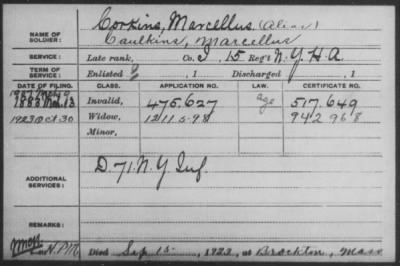 Corkins, Marcellus, (Alias)
NAME OF SOLDIER: Caulkins, Marcellus
SERVICE: Late rank, Co. I, 15 Reg't N.Y.H.A.
TERM OF SERVICE: Enlisted , 1 Discharged , 1
DATE OF FILING. CLASS. APPLICATION NO. LAW. CERTIFICATE NO.
1883 Invalid, 475.627 age 517.649
1923 Oct 30 Widow, 1211598 942968
Minor,
ADDITIONAL SERVICES: D. 71. N.Y. Inf.
REMARKS:
Died Sep 15, 1923, at Brockton, Mass